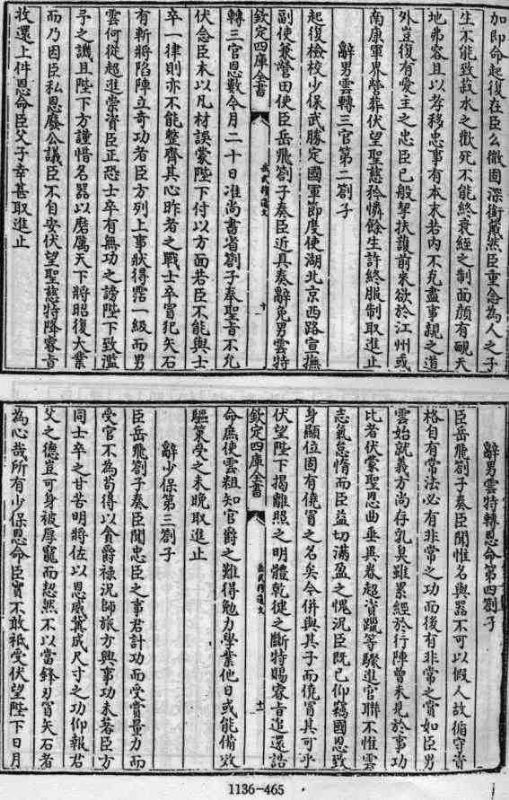 加即命起復在臣么微固深銜戴然臣重念為人之子
生不能致菽水之歡死不能終衰絰之制面顏有靦天
地弗容且以孝移忠事有本末若内不克盡事親之道
外豈復有愛主之忠臣已般挈扶護前來欲於江州或
南康軍界營葬伏望聖慈矜憐餘生許終服制取進止
辭男雲轉三官第二劄子
起復檢校少保武勝定國軍節度使湖北京西路宣撫
副使兼營田使臣岳飛劄子奏臣近具奏辭免男雲特
欽定四庫全書
岳武穆遺文
十
轉三官恩數今月二十日准尚書省劄子奉聖旨不允
伏念臣本以凡材誤蒙陛下付以方面若臣不能與士
卒一律則亦不能整齊其心昨者之戰士卒冒犯矢石
有斬將陷陣立奇功者臣方列上事狀得霑一級而男
雲何從超進崇資臣正恐士卒有無功之謗陛下致濫
予之譏且陛下方謹惜名器以磨厲天下將昭復大業
而乃因臣私恩廢公議臣不自安伏望聖慈特降睿旨
收還上件恩命臣父子幸甚取進止
辭男雲特轉恩命第四劄子
臣岳飛劄子奏臣聞惟名與器不可以假人故循守資
格自有常法必有非常之功而後有非常之賞如臣男
雲始就義方尚存乳臭雖累經於行陣曾未見於事功
比者伏蒙聖恩曲垂異眷超資躐等驟進官聯不惟雲
志氣怠惰而臣益切滿盈之愧況臣既已仰竊國恩致
身顯位固有僥冒之名矣今併與其子而僥冒其可乎
伏望陛下揭離照之明體乾健之斷特賜睿旨追還誥
欽定四庫全書
岳武穆遺文
十一
命庶使雲粗知官爵之難得勉力學業他日或能備效
驅策受之未晚取進止
辭少保第三劄子
臣岳飛劄子奏臣聞忠臣之事君計功而受賞量力而
受官不為苟得以貪爵祿況師旅方興事功未著臣方
同士卒之甘苦明將佐以恩威冀成尺寸之功仰報君
父之德豈可身被厚寵而恝然不以當鋒刃冒矢石者
為心哉所有少保恩命臣實不敢祗受伏望陛下日月
1136-465